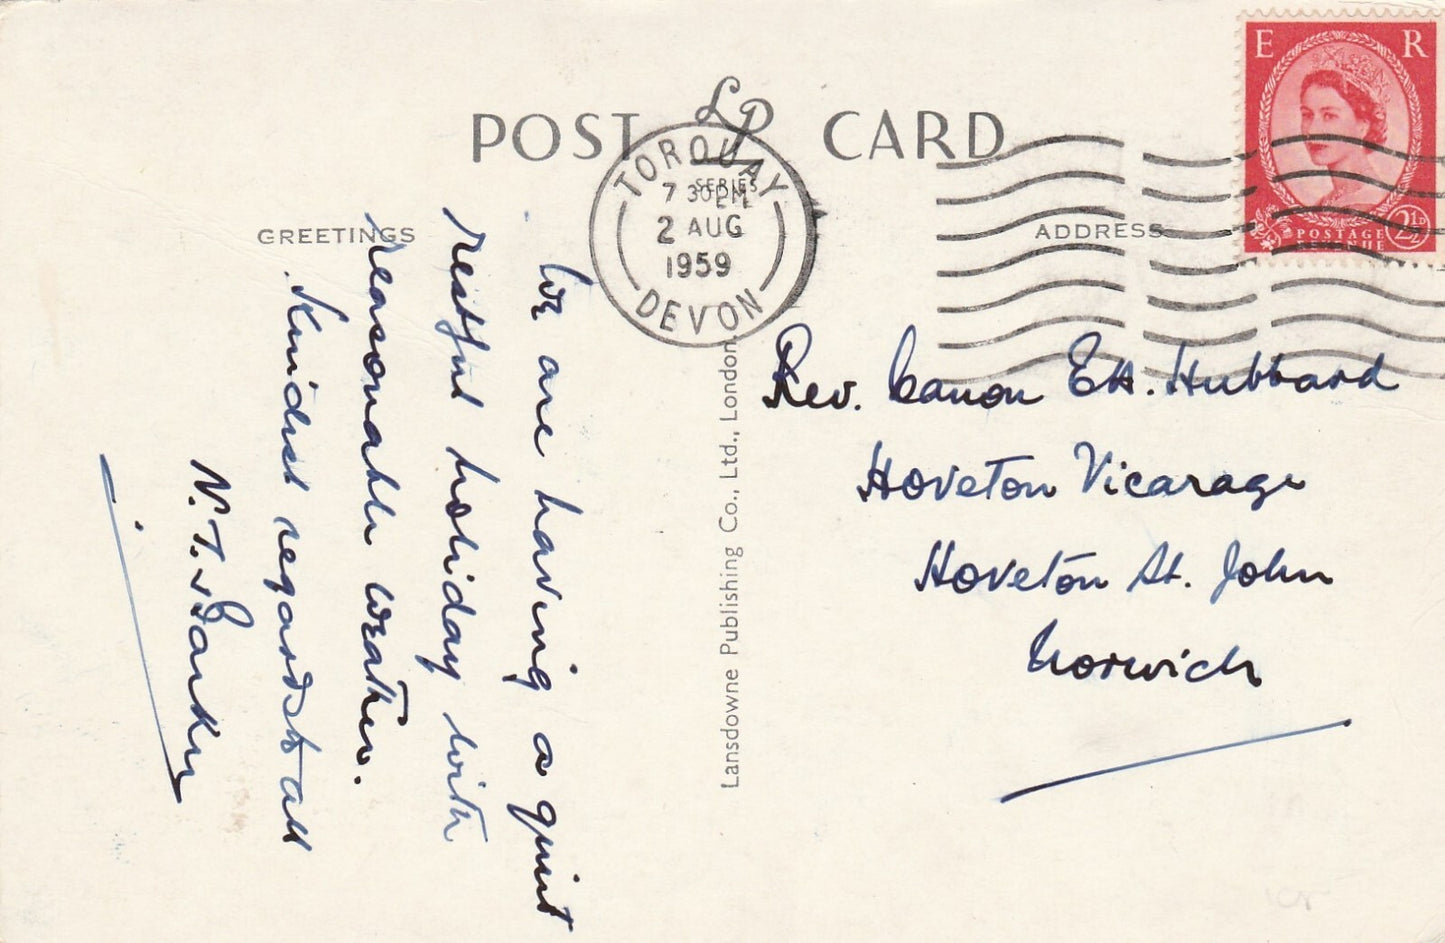 POST LP CARD
SERIES
TORQUAY
7 30 PM
2 AUG
1959
DEVON
E R
POSTAGE
REVENUE
2½D
GREETINGS
ADDRESS
We are having a quiet
restful holiday with
reasonable weather.
Kindest regards to all
N. T. Barker
Lansdowne Publishing Co., Ltd., London.
Rev. Canon E. H. Hubbard
Hoveton Vicarage
Hoveton St. John
Norwich